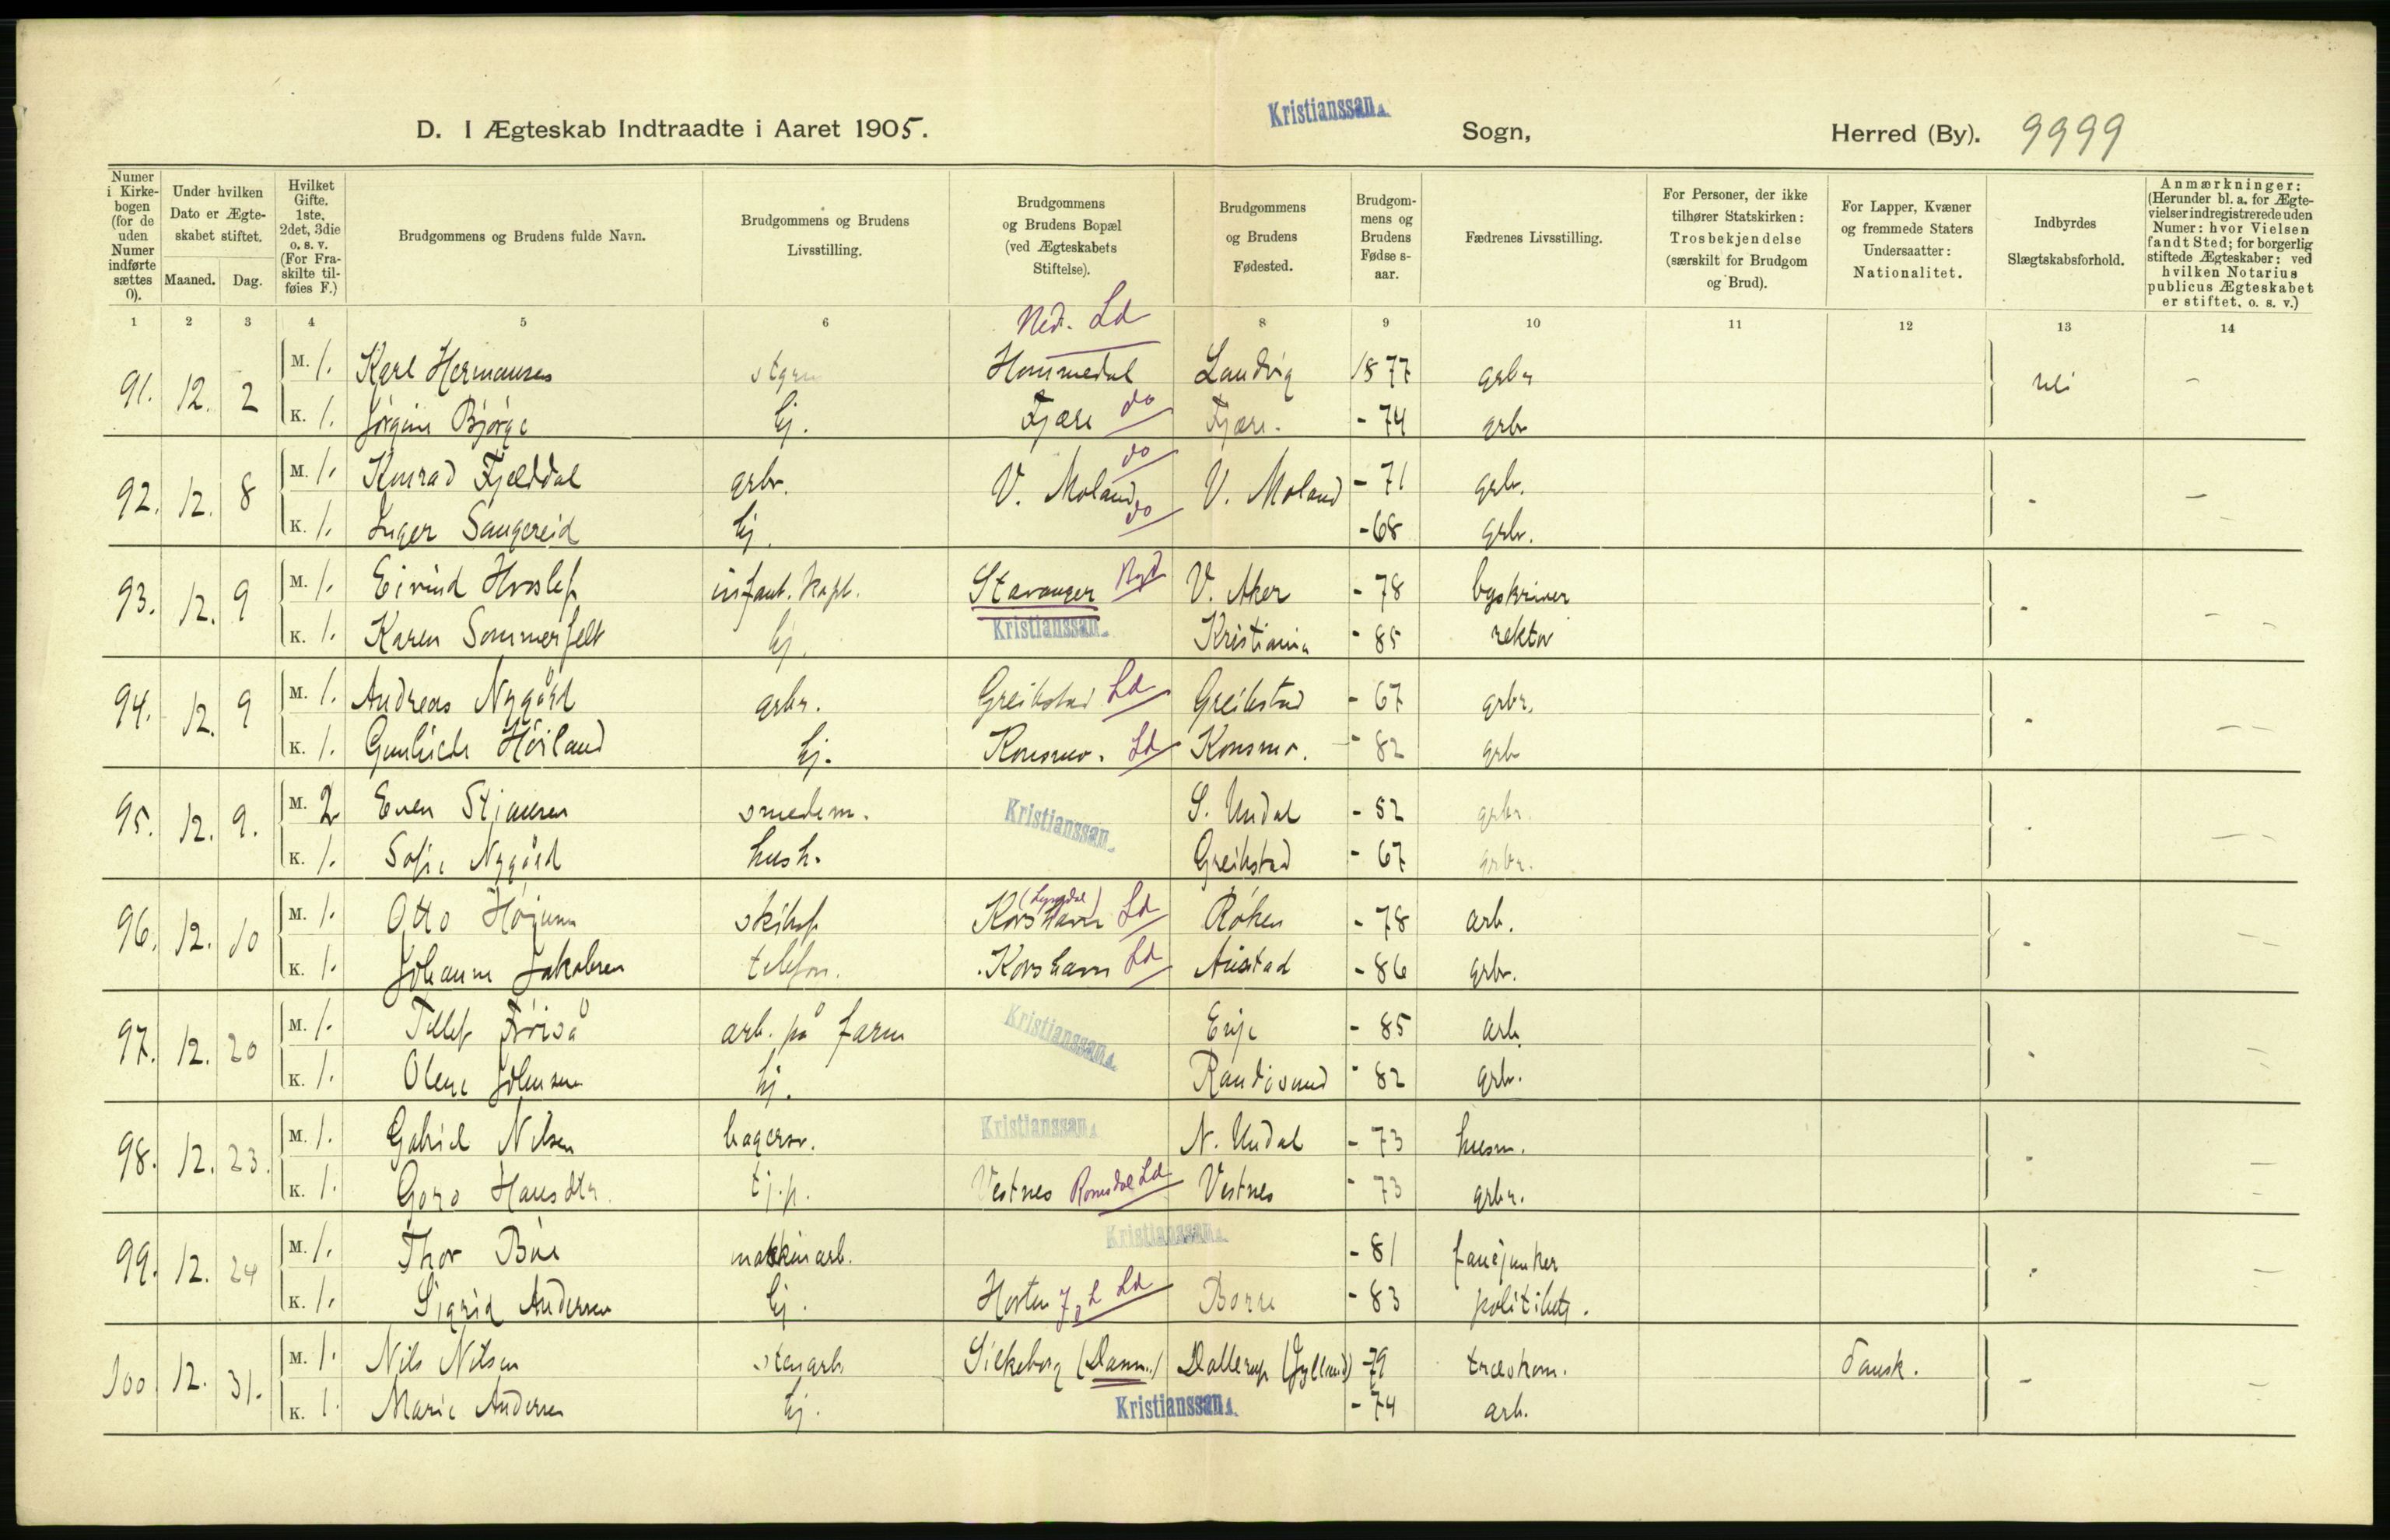 D. I Ægteskab Indtraadte i Aaret 1905. Kristianssand Sogn, Herred (By). 9999
Numer i Kirkebogen (for de uden Numer indførte sættes 0).
Under hvilken Dato er Ægteskabet stiftet.
Maaned. Dag.
Hvilket Gifte. 1ste, 2det, 3die o. s. v. (For Fraskilte tilføies F.)
Brudgommens og Brudens fulde Navn.
Brudgommens og Brudens Livsstilling.
Brudgommens og Brudens Bopæl (ved Ægteskabets Stiftelse).
Brudgommens og Brudens Fødested.
Brudgommens og Brudens Fødselsaar.
Fædrenes Livsstilling.
For Personer, der ikke tilhører Statskirken: Trosbekjendelse (særskilt for Brudgom og Brud).
For Lapper, Kvæner og fremmede Staters Undersaatter: Nationalitet.
Indbyrdes Slægtskabsforhold.
Anmærkninger: (Herunder bl. a. for Ægtevielser indregistrerede uden Numer: hvor Vielsen fandt Sted; for borgerlig stiftede Ægteskaber: ved hvilken Notarius publicus Ægteskabet er stiftet, o. s. v.)
1 2 3 4 5 6 Ned. Ld 8 9 10 11 12 13 14
91. 12. 2 M. 1. Karl Hermansen Hommedal Landvig 1877 grbr nei -
K. 1. Jørgine Bjørge hj. Fjære do Fjære - 74 grbr
92. 12. 8 M. 1. Konrad Fjelddal grbr. V. Moland do V. Moland - 71 grbr. - -
K. 1. Inger Saugereid hj. do - 68 grbr.
93. 12. 9 M. 1. Eivind Hvoslef infant. kapt. Stavanger V. Aker - 78 byskriver - -
K. 1. Karen Sommerfelt hj. Kristianssand Kristiania - 85 rektor -
94. 12. 9 M. 1. Andreas Nygård grbr. Greibstad Ld Greibstad - 67 grbr. - -
K. 1. Høiland hj. Konsmo. Ld Konsmo. - 82 grbr
95. 12. 9. M. 2 Even Stiansen smedem. Kristianssand S. Undal - 52 grbr. - -
K. 1. Sofie Nygård hush. Greibstad - 67 grbr.
96. 12. 10 M. 1. Otto (Lyngdal) Korshavn Ld Røken - 78 arb. - -
K. 1. Johanne Jakobsen telefon. Korshavn Ld Austad - 86 grbr. -
97. 12. 20 M. 1. Tellef arb. på farm Kristianssand - 85 arb. - -
K. 1. Olene Johnsen hj. Randøsund - 82 grbr. -
98. 12. 23. M. 1. Gabriel Nilsen bagersv. Kristianssand N. Undal - 73 husm. - -
K. 1. Goro Hansdtr. tj.p. Vestnes Romsdal Ld Vestnes - 73 grbr. -
99. 12. 24 M. 1. Thor Bøe maskinarb. Kristianssand - 81 fanejunker - -
K. 1. Sigrid Andersen hj. Horten Ld Borre - 83 politibetj. -
100 12. 31. M. 1. Nils Nilsen stenarb Silkeborg (Danm.) Dallerup (Jylland) - 79 træskom. dansk. - -
K. 1. Marie Andersen hj. Kristianssand - 74 arb. -